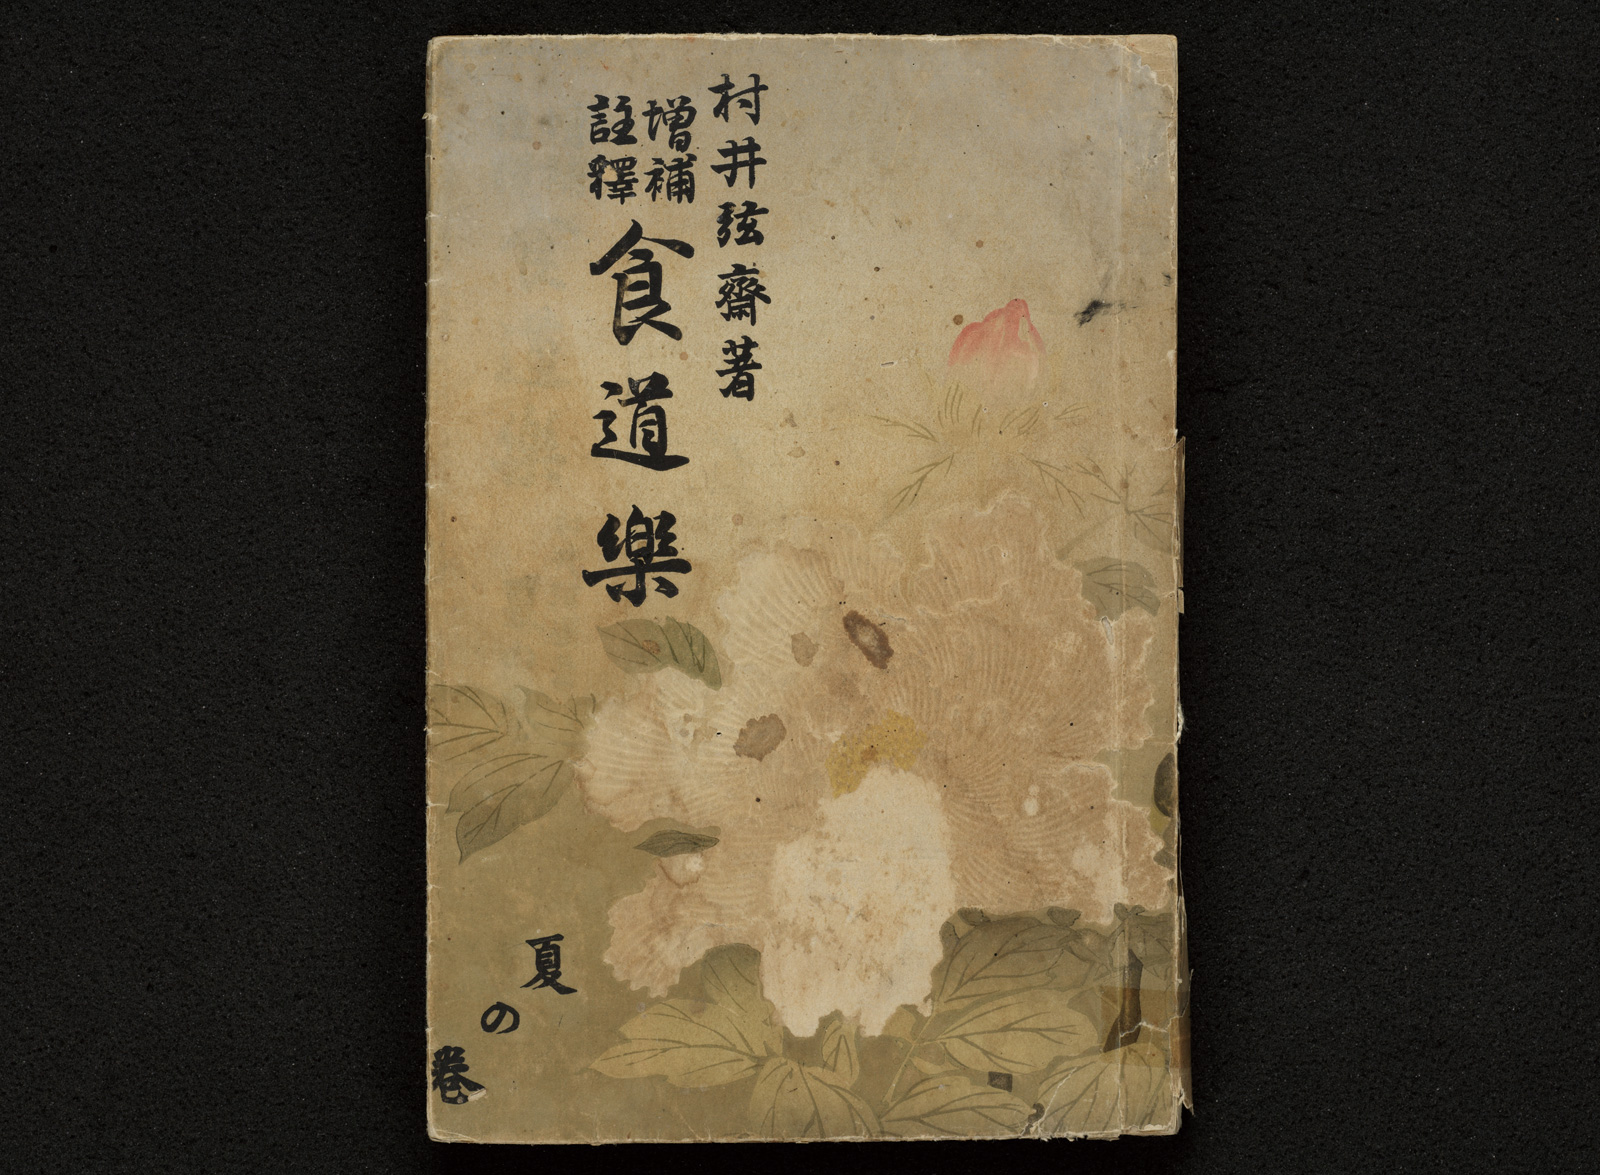 村井弦齋著
增補
註釋
食道樂
夏の卷